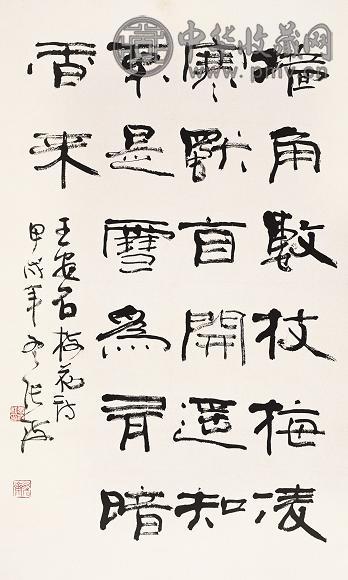 中华收藏网
墻角數枝梅凌
寒獨自開遥知
不是雪為有暗
香來
王安石梅花詩
甲戌年冬張海